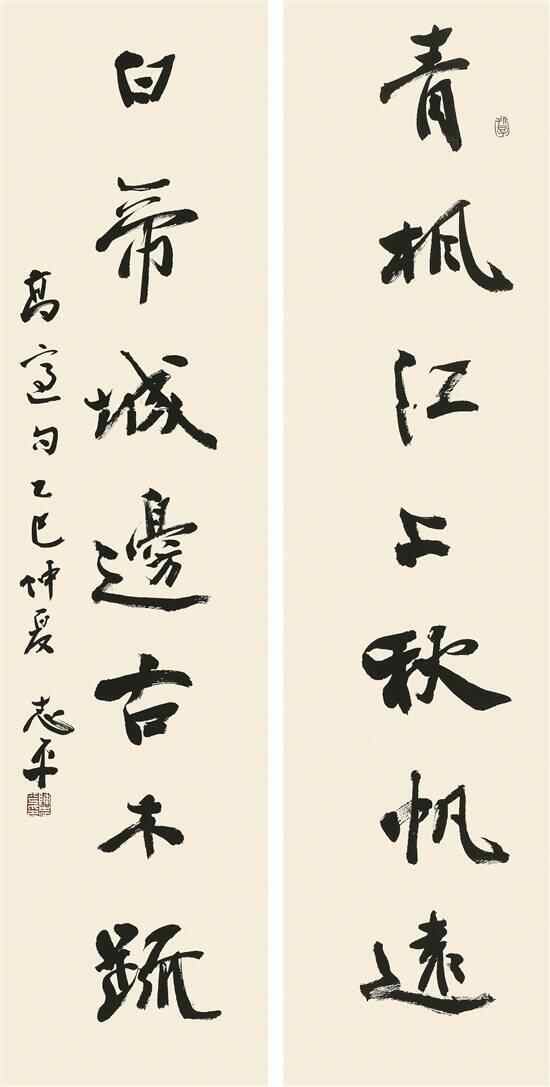 青枫江上秋帆遠
白帝城邊古木疏
高適句乙巳仲夏 志平